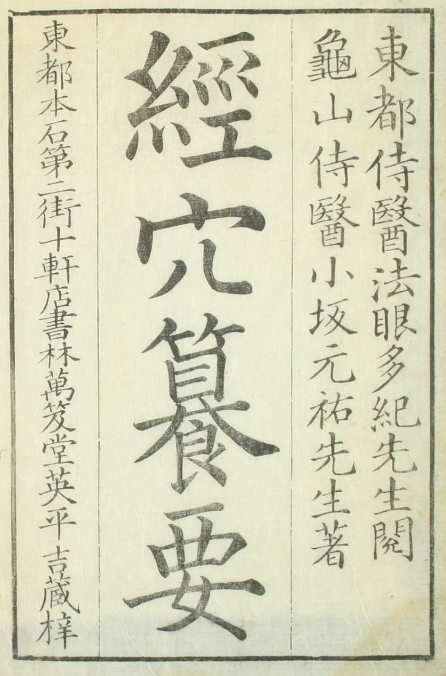 東都侍醫法眼多紀先生閱
龜山侍醫小坂元祐先生著
經穴纂要
東都本石第二街十軒店書林萬笈堂英平吉藏梓